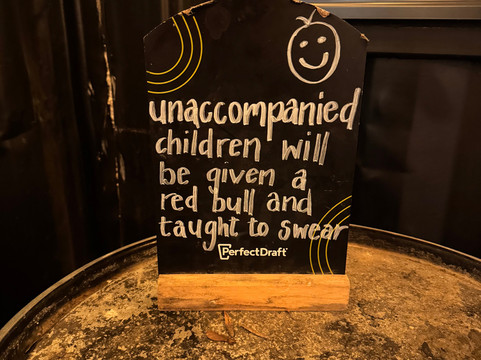 unaccompanied
children will
be given a
red bull and
taught to swear
PerfectDraft